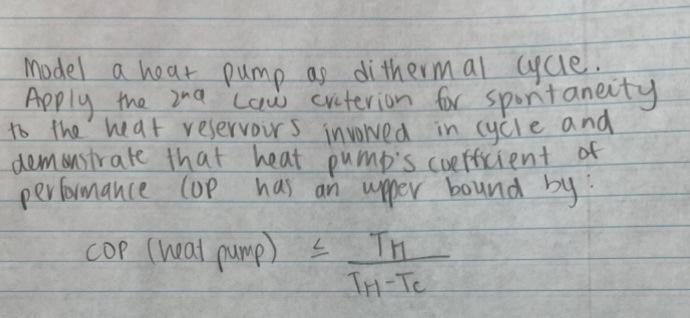 Model a heat pump as dithermal cycle.
Apply the 2nd Law criterion for spontaneity
to the heat reservoirs involved in cycle and
demonstrate that heat pump's coefficient of
performance COP has an upper bound by:
COP (heat pump) ≤ TH / TH-Tc